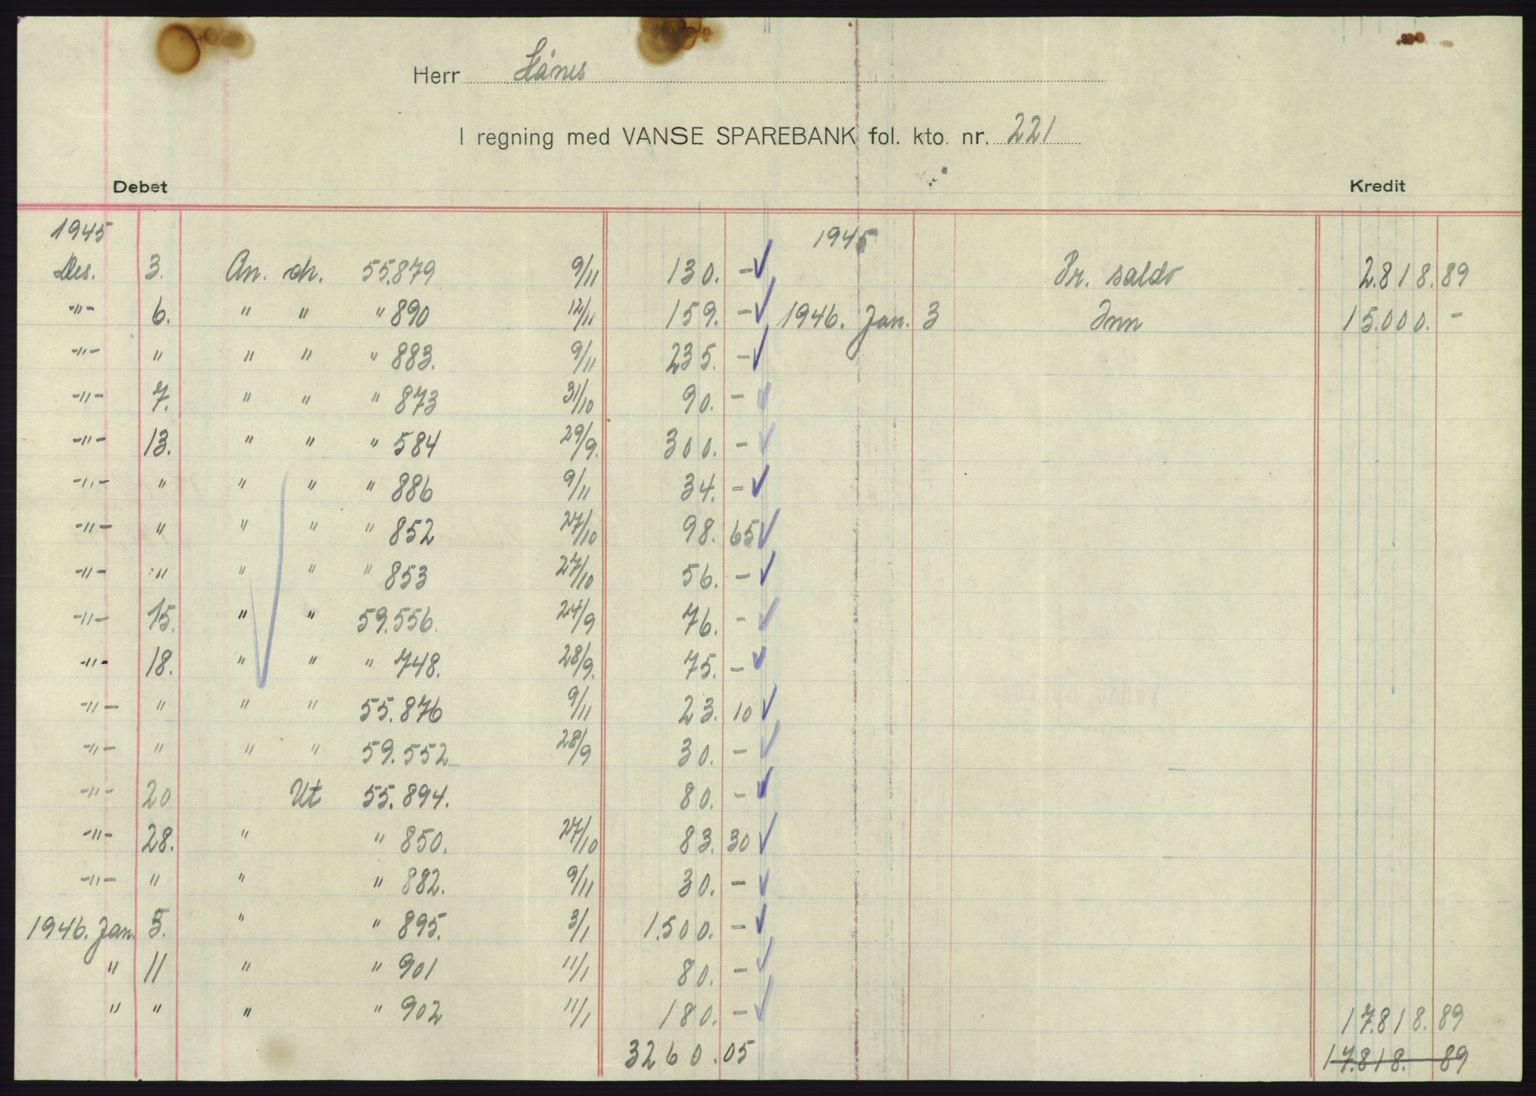 Herr Hånes
I regning med VANSE SPAREBANK fol. kto. nr. 221
Debet Kredit
1945 1945
Des. 3. An. ch. 55.879 9/11 130. - Pr. saldo 2.818.89
-"- 6. " " " 890 12/11 159. - 1946. Jan. 3 Inn 15.000. -
-"- " " " " 883. 9/11 235. -
-"- 7. " " " 873 31/10 90. -
-"- 13. " " " 584 29/9. 300. -
-"- " " " " 886 9/11 34. -
-"- " " " " 852 27/10 98. 65
-"- " " " " 853 27/10 56. -
-"- 15. " " 59.556. 24/9 76. -
-"- 18. " " " 748. 28/9. 75. -
-"- " " " 55.876 9/11 23. 10
-"- " " " 59.552 28/9 30. -
-"- 20 Ut 55.894. 80. -
-"- 28. " " 850. 27/10 83. 30
-"- " " " 882. 9/11 30. -
1946. Jan. 5. " " 895. 3/1 1.500. -
" 11 " " 901 11/1 80. -
" " " " 902 11/1 180. - 17.818.89
3260.05 17.818. 89